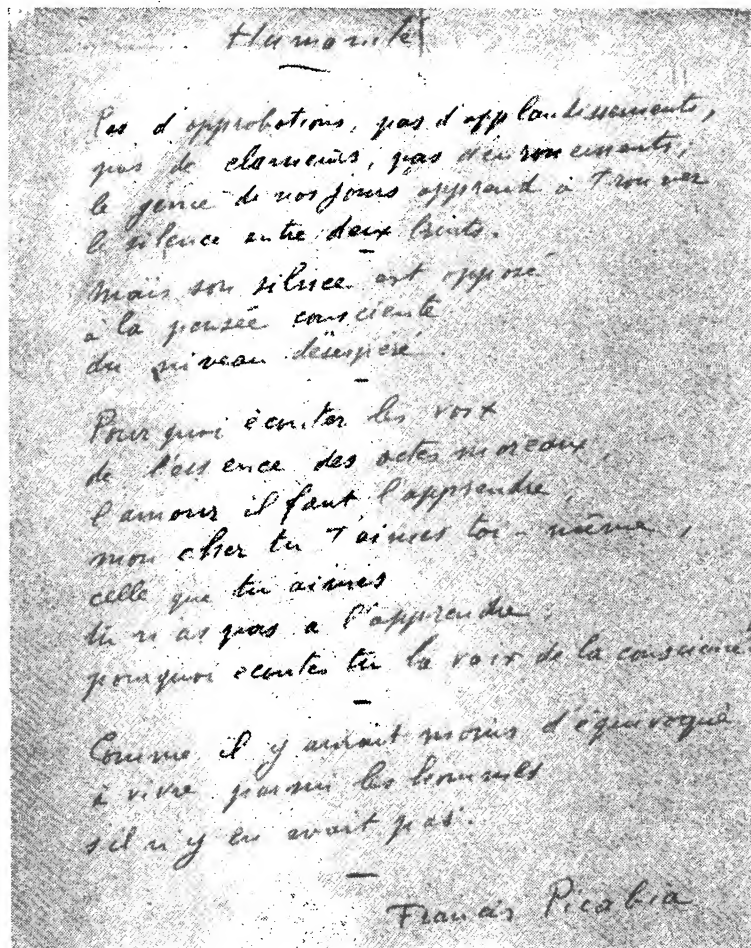 Humanité
Pas d'approbations, pas d'applaudissements,
pas de clameurs, pas d'envoncements,
le génie de nos jours apprend à trouver
le silence entre deux bruits.
Mais son silence est opposé
à la pensée consciente
du niveau désespéré.
Pourquoi écouter les voix
de l'essence des actes moreaux,
l'amour il faut l'apprendre,
mon cher tu t'aimes toi-même,
celle que tu aimes
tu n'as pas a l'apprendre.
pourquoi ecoutes tu la voix de la conscience
Comme il y aurait moins d'équivoque
à vivre parmi les hommes
s'il n'y en avait pas.
Francis Picabia